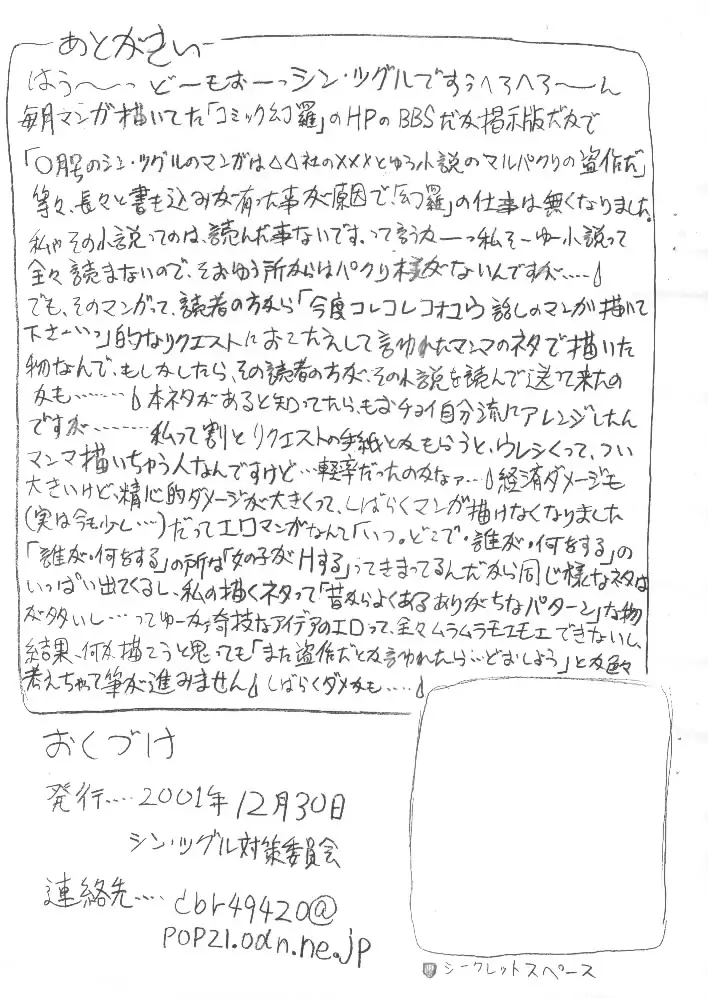 あとがきぃ
はう〜っ どーもぉーっシン・ツグルですぅへろへろ〜ん
毎月マンガ描いてた「コミック幻羅」のHPのBBSだか掲示版だかで
「〇月号のシン・ツグルのマンガは△△社の×××とゆう小説のマルパクリの盗作だ」
等々、長々と書き込みが有った事が原因で「幻羅」の仕事は無くなりました。
私ゃその小説ってのは、読んだ事ないです、って言うかーっ私そーゆー小説って
全々読まないので、そおゆう所からはパクり様がないんですが……
でも、そのマンガって、読者の方から「今度コレコレコオユウ話しのマンガ描いて
下さーい」的なリクエストにおこたえして言われたマンマのネタで描いた
物なんで、もしかしたら、その読者の方が、その小説を読んで送って来たの
かも……… 本ネタがあると知ってたら、もおチョイ自分流にアレンジしたん
ですが……… 私って割とリクエストの手紙とかもらうと、ウレシくって、つい
マンマ描いちゃう人なんですけど…軽率だったのかなァ… 経済ダメージも
大きいけど、精心的ダメージが大きくって、しばらくマンガ描けなくなりました
(実は今も少し…)だってエロマンガなんて「いつ。どこで・誰が・何をする」の
「誰が・何をする」の所は「女の子がHする」ってきまってるんだから同じ様なネタは
いっぱい出てくるし、私の描くネタって「昔からよくあるありがちなパターン」な物
が多いし…ってゆーか、奇技なアイデアのエロって、全々ムラムラモエモエできないし、
結果、何か描こうと思っても「また盗作だとか言われたら…どおしよう」とか色々
考えちゃって筆が進みません しばらくダメかも……
おくづけ
発行….2001年12月30日
シン・ツグル対策委員会
連絡先….cbr49420@
pop21.odn.ne.jp
シークレットスペース